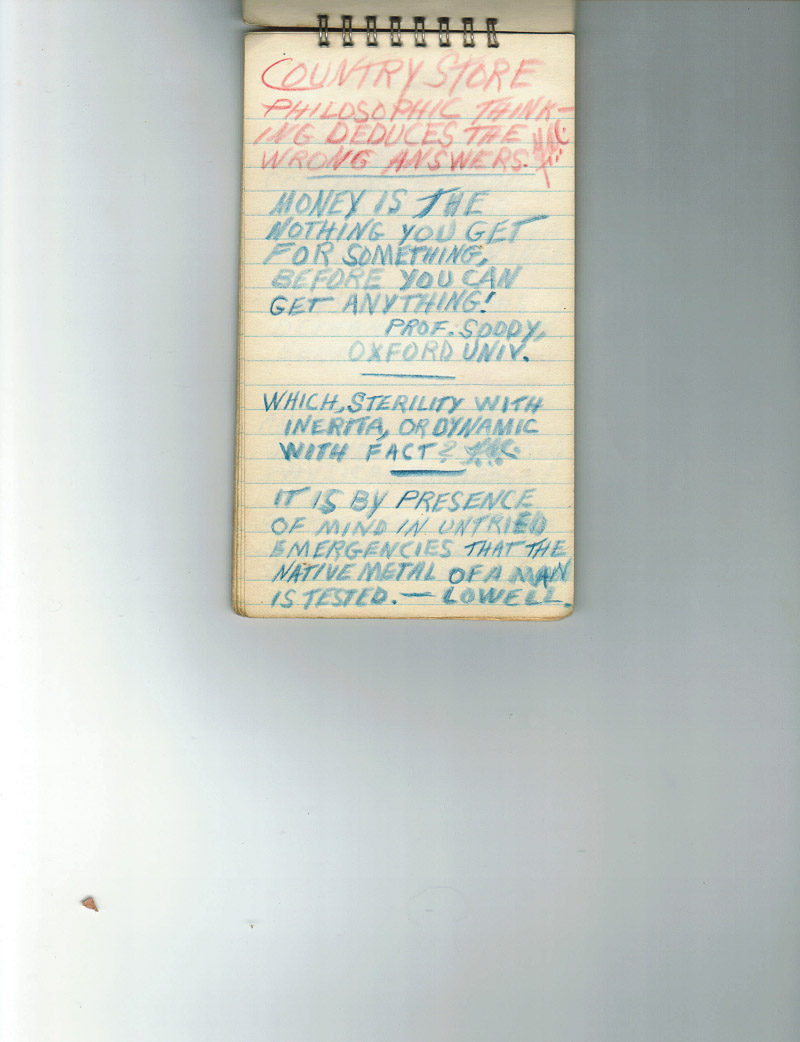 COUNTRY STORE
PHILOSOPHIC THINK-
ING DEDUCES THE
WRONG ANSWERS.
MONEY IS THE
NOTHING YOU GET
FOR SOMETHING,
BEFORE YOU CAN
GET ANYTHING!
PROF. SODDY,
OXFORD UNIV.
WHICH, STERILITY WITH
INERITA, OR DYNAMIC
WITH FACT?
IT IS BY PRESENCE
OF MIND IN UNTRIED
EMERGENCIES THAT THE
NATIVE METAL OF A MAN
IS TESTED. — LOWELL.